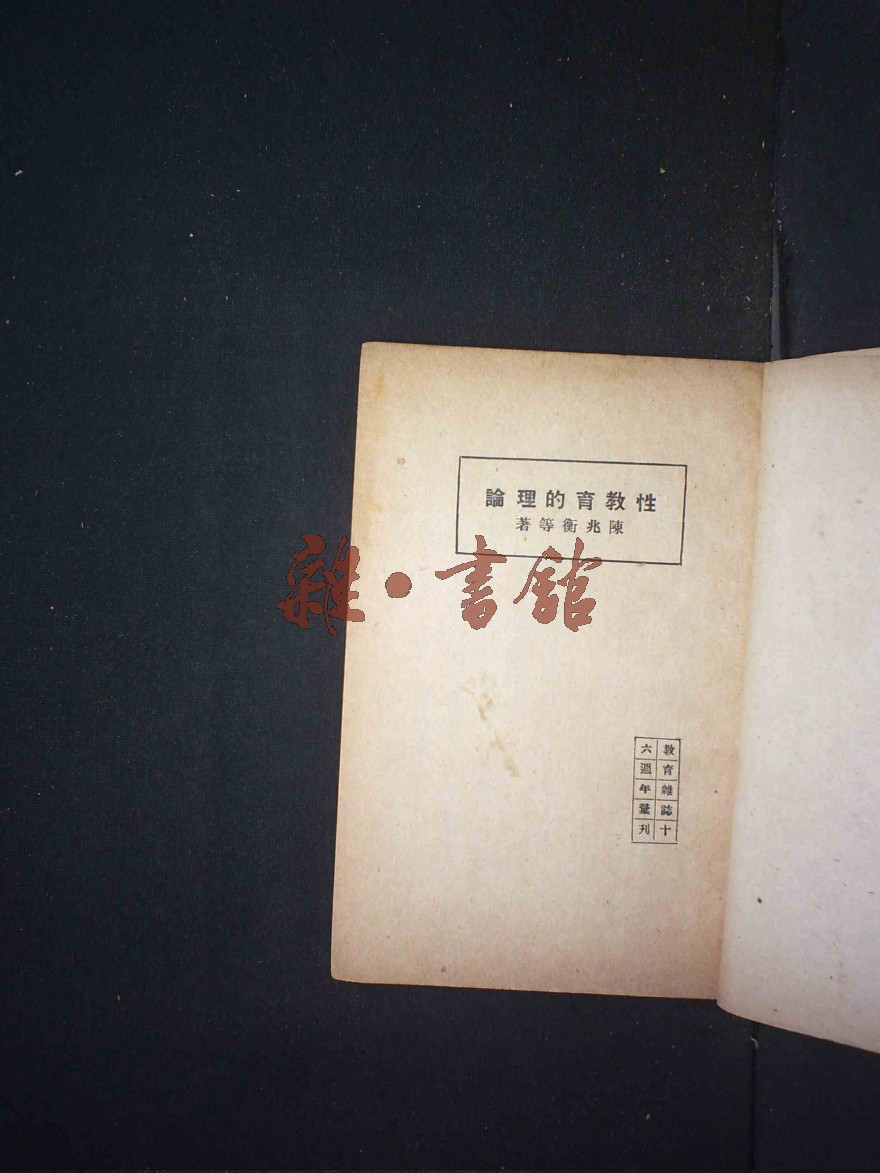 性教育的理論
陳兆衡等著
雜·書館
教育雜誌十
六週年彙刊